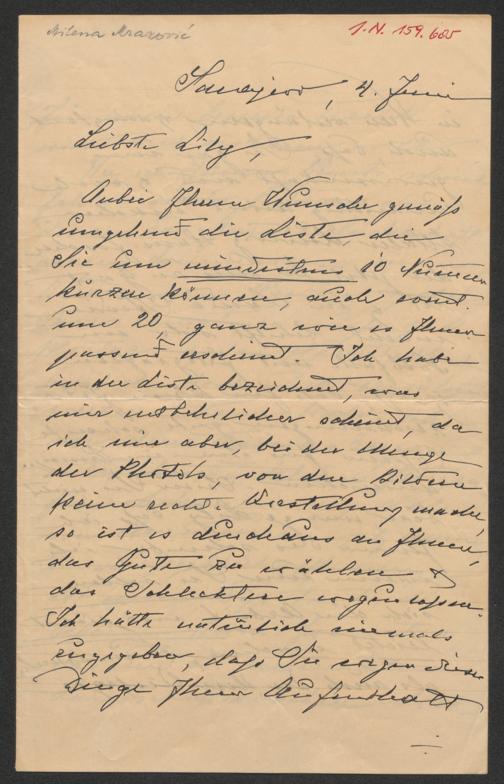 Milena Mrazović
I.N. 159.685
Sarajevo, 4. Juni
Liebste Lily,
Anbei Ihrem Wunsche gemäß
umgehend die Liste, die
Sie um mindestens 10 Nummern
kürzen können, auch
um 20, ganz wie es Ihnen
passend erscheint. Ich habe
in der Liste bezeichnet, was
mir entbehrlicher scheint, da
ich mir aber, bei der Menge
der Photos, von den Bildern
keine rechte Vorstellung mache,
so ist es durchaus an Ihnen,
das Gute zu wählen &
das Schlechtere wegzulassen.
Ich hätte natürlich niemals
zugegeben, daß Sie wegen dieser
Dinge Ihren Aufenthalt